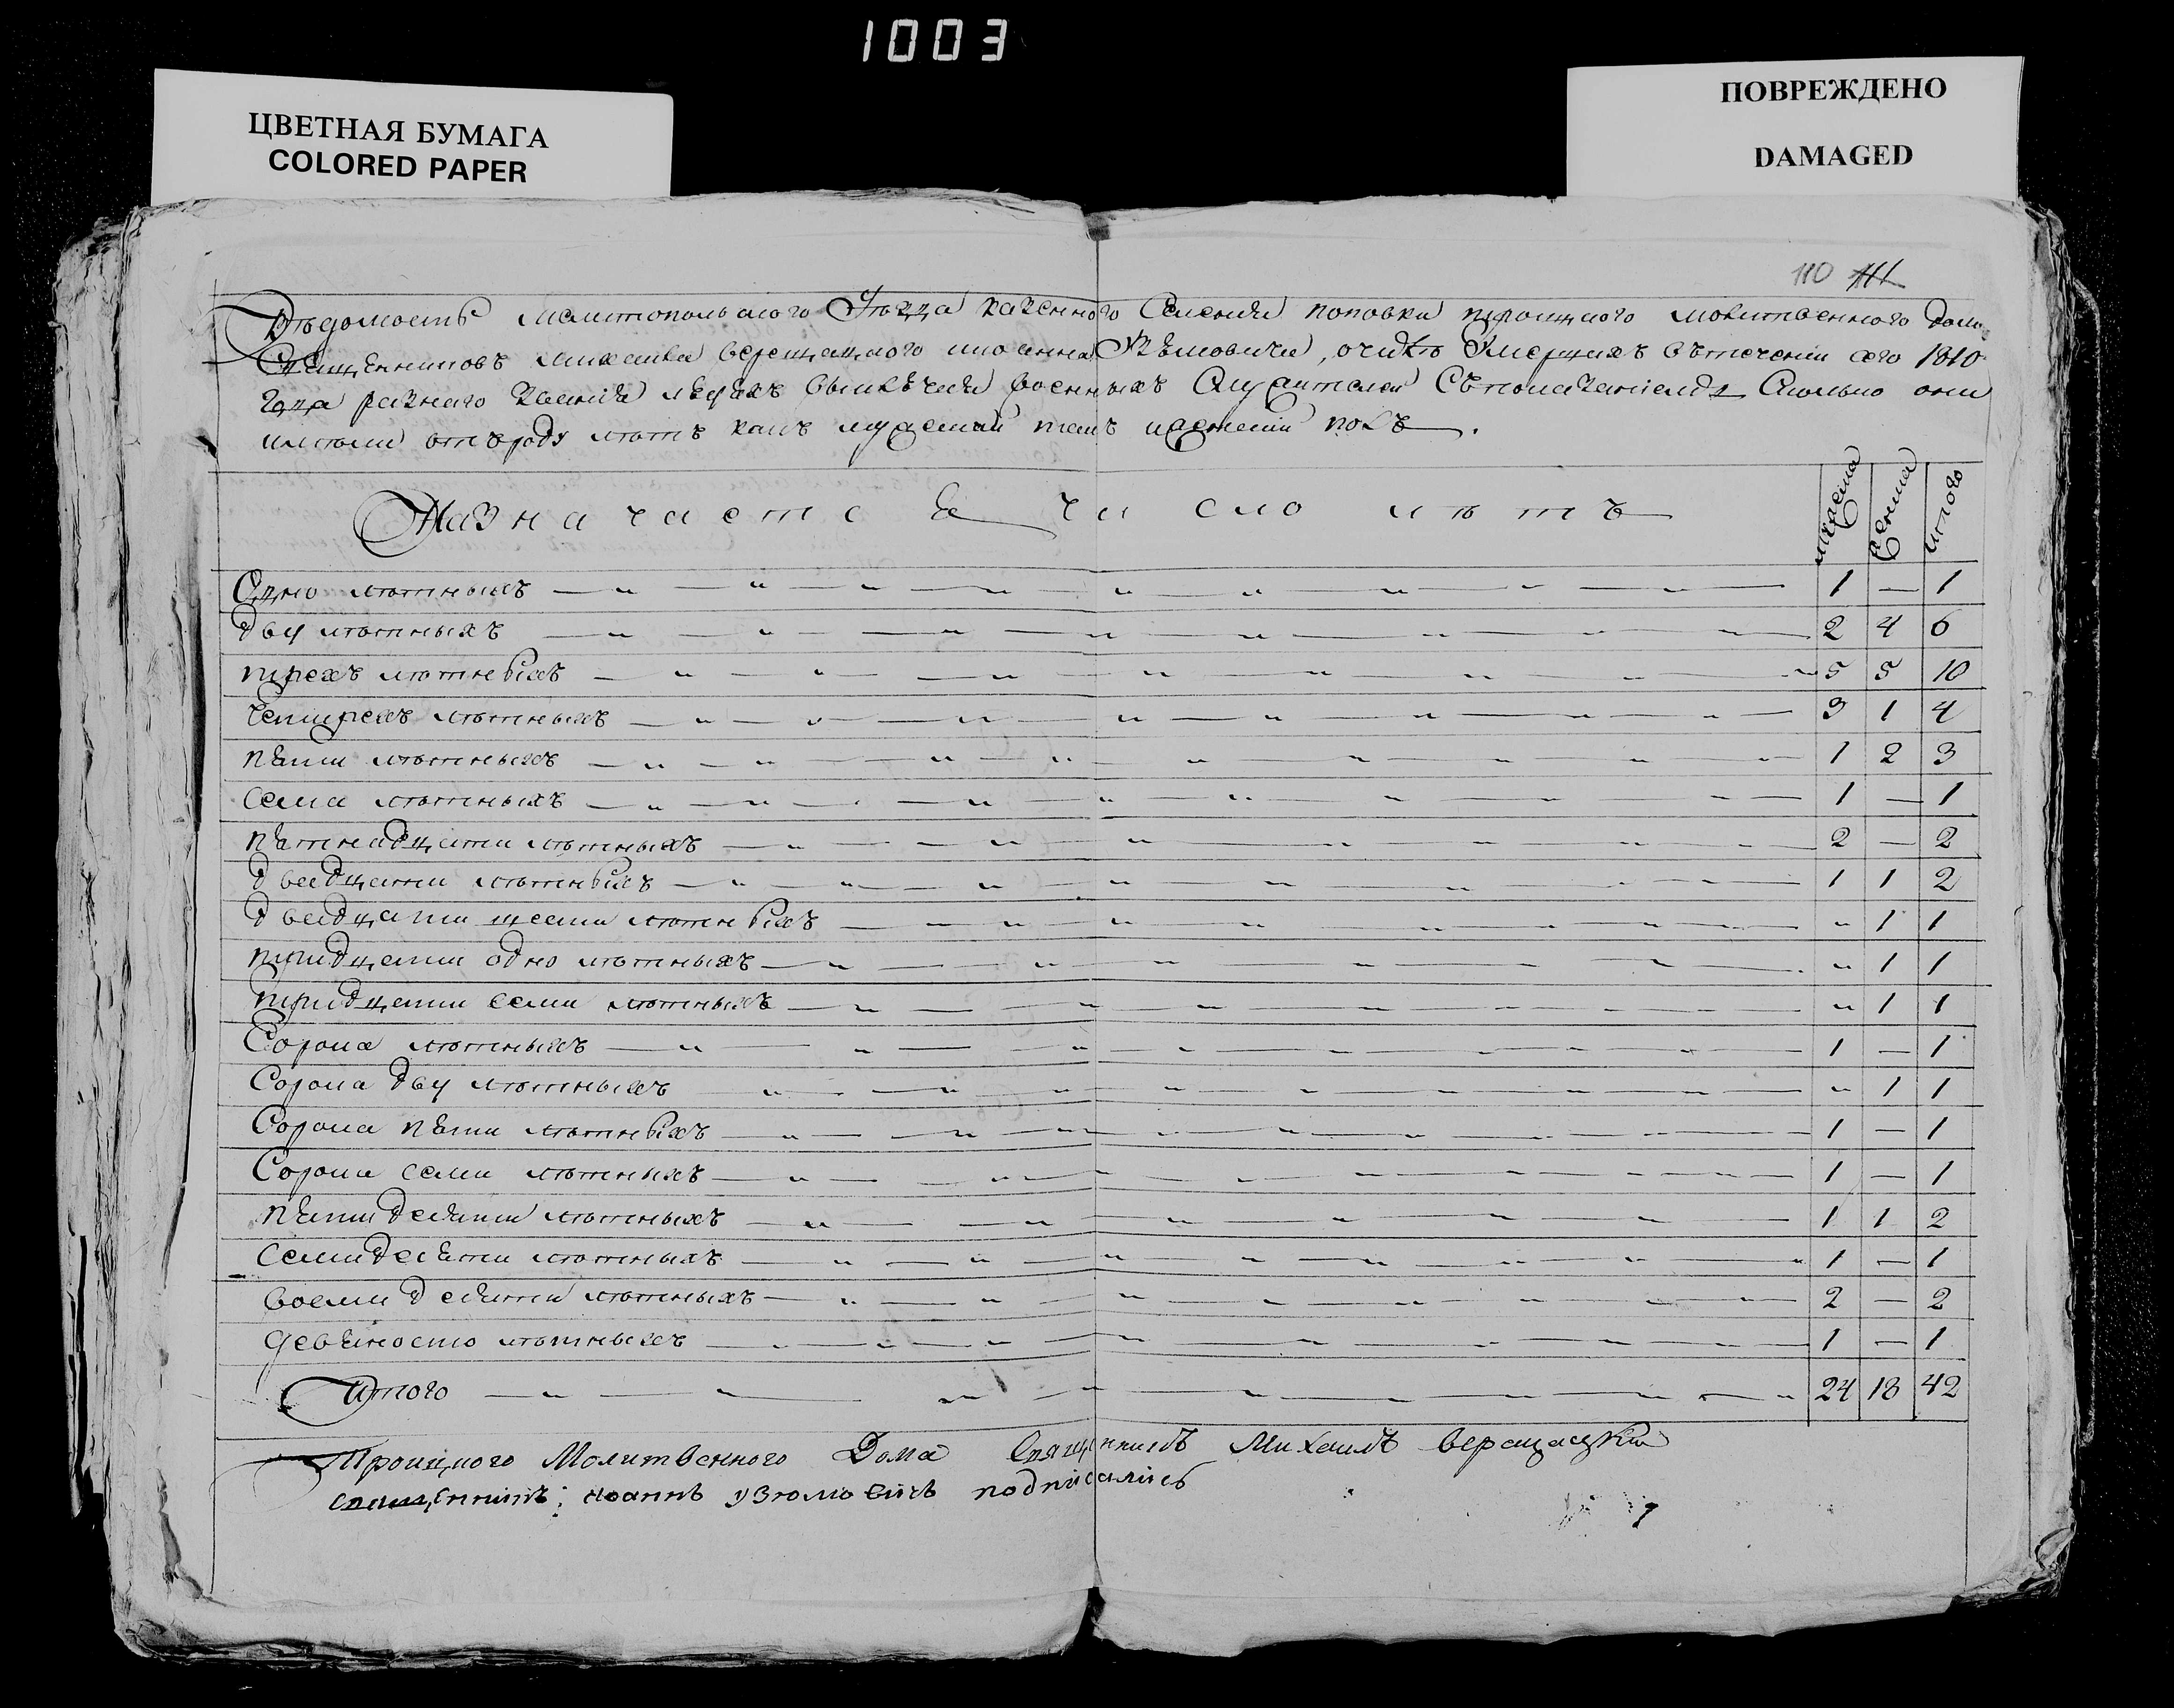 1003
ЦВЕТНАЯ БУМАГА
COLORED PAPER
ПОВРЕЖДЕНО
DAMAGED
110 111
Вѣдомость Мелитопольского Уѣзда казенного Селения поповки троицкого молитвенного дома
Священниковъ михаила верещацкого и иоанна Узѣмовича, о числѣ Умершихъ въ течении сего 1810
Года разнаго звания людехъ выключая военныхъ Служителей Съ показаниемъ Сколько они
имѣли отъ роду лѣтъ какъ мужеский такъ и женский полъ.
Назначаетса число лѣтъ
мужеска
женска
итого
Одно лѣтныхъ 1 — 1
двy лѣтныхъ 2 4 6
трехъ лѣтныхъ 5 5 10
четирехъ лѣтныхъ 3 1 4
пяти лѣтныхъ 1 2 3
семи лѣтныхъ 1 — 1
пятнадцати лѣтныхъ 2 — 2
двадцати лѣтныхъ 1 1 2
двадцати шести лѣтныхъ 1 1
тридцати одно лѣтныхъ 1 1
тридцати семи лѣтныхъ 1 1
Сорока лѣтныхъ 1 — 1
Сорока двy лѣтныхъ 1 1
Сорока пяти лѣтныхъ 1 — 1
Сорока семи лѣтныхъ 1 — 1
пятидесяти лѣтныхъ 1 1 2
семидесяти лѣтныхъ 1 — 1
восмидесяти лѣтныхъ 2 — 2
девяносто лѣтныхъ 1 — 1
Итого 24 18 42
Троицкого Молитвенного Дома Священникъ Михаилъ Верещацкій
священникъ Іоаннъ узюмовичь подписались